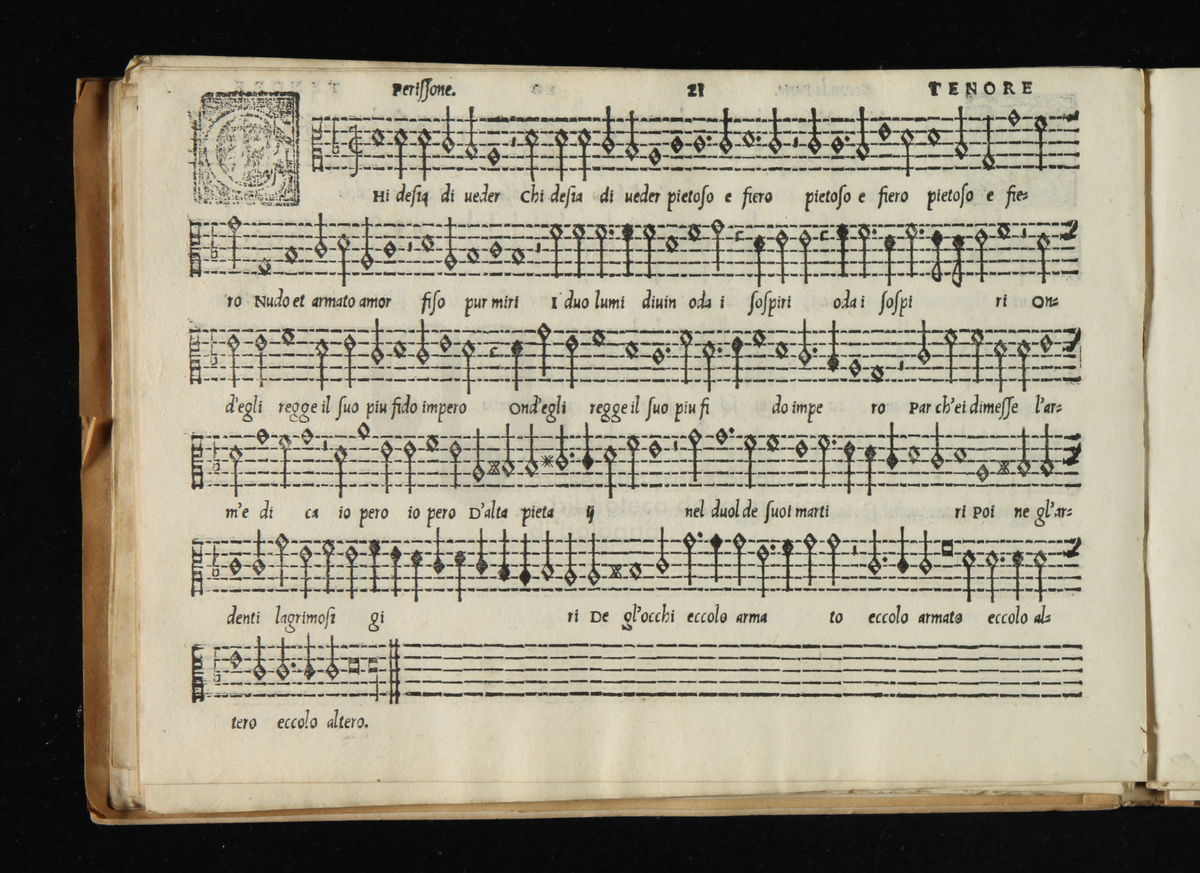 Perissone. 21 TENORE
CHi desia di ueder Chi desia di ueder pietoso e fiero pietoso e fiero pietoso e fie-
ro Nudo et armato amor fiso pur miri I duo lumi diuin oda i sospiri oda i sospi ri On-
d'egli regge il suo piu fido impero Ond'egli regge il suo piu fi do impe ro Par ch'ei dimesse l'ar-
m'e di ca io pero io pero D'alta pieta ij nel duol de suoi marti ri Poi ne gl'ar-
denti lagrimosi gi ri De gl'occhi eccolo arma to eccolo armato eccolo al-
tero eccolo altero.